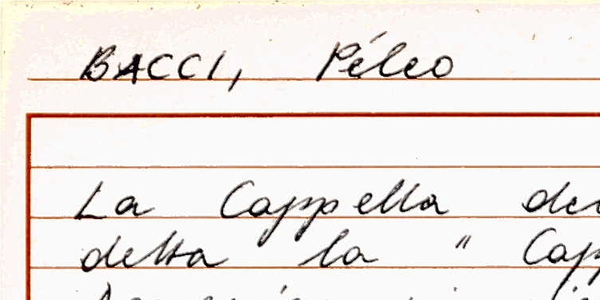 BACCI, Péleo
La Cappella
detta la "